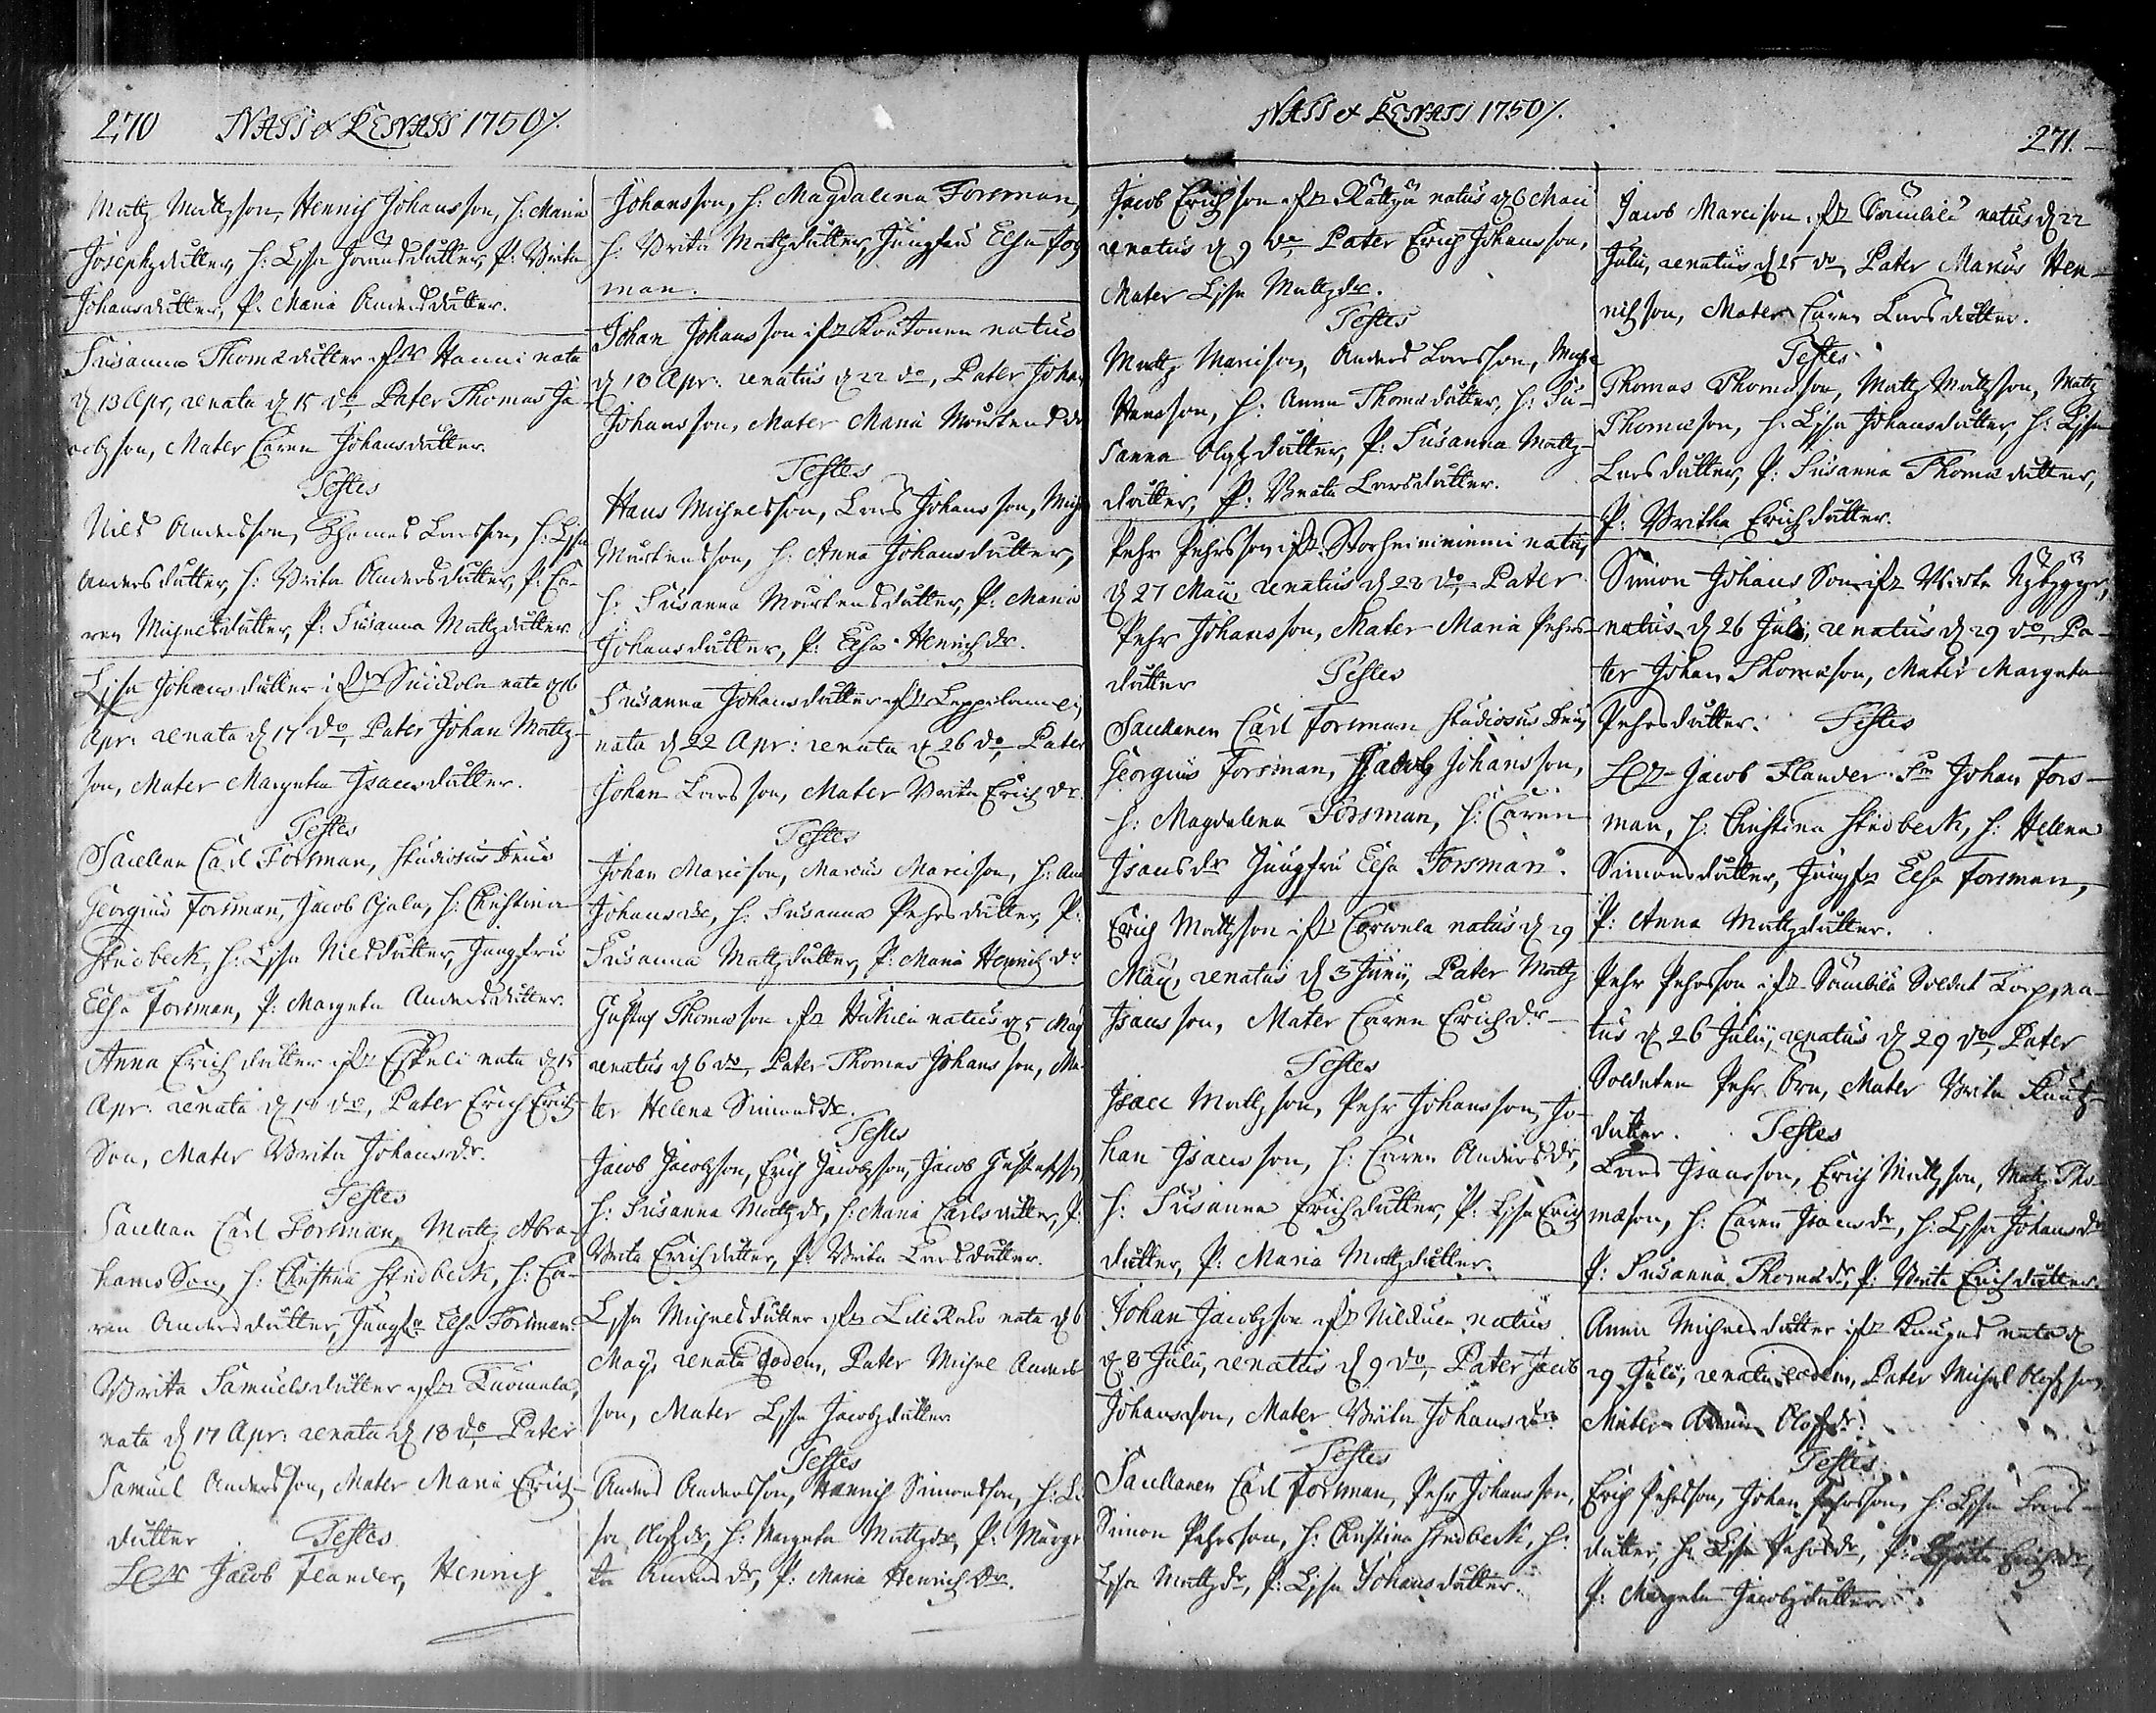 270 NASS & RENASS 1750/.
Mattz Mattzson, Henrich Johansson, h: Maria
Josephzdutter, h: Lisa Jonæsdutter, P: Brita
Johansdutter, P. Maria Andersdutter.
Susanna Thomædutter ifr Hanni nata
d 13 Apr, renata d 15 do Pater Thomas Ja-
cobzson, Mater Caren Johansdutter.
Testes
Nils Andersson, Thomas Larsson, h: Lisa
Andersdutter, h: Brita Andersdutter, P: Ca-
ren Michelsdutter, P: Susanna Mattzdutter.
Lisa Johansdutter ifr Suickola nata d 16
Apr: renata d 17 do, Pater Johan Mattz-
son, Mater Margeta Isacsdutter.
Testes
Sacellan Carl Forsman, Studiosus Dnus
Georgius Forsman, Jacob Ojala, h: Christina
Stedbeck, h: Lisa Nilsdutter, Jungfru
Elsa Forsman, P: Margeta Andersdutter.
Anna Erichdutter ifr Eskeli nata d 15
Apr: renata d 18 do, Pater Erich Erich-
Son, Mater Brita Johansdr.
Testes
Sacellan Carl Forsman, Mattz Abra-
hams Son, h: Christina Stedbeck, h: Ca-
ren Andersdutter, Jungfr Elsa Forsman.
Brita Samuelsdutter ifr Tuomala,
nata d 17 Apr: renata d 18 do, Pater
Samuel Andersson, Mater Maria Erich-
dutter Testes
Jacob Flander, Henrich
Johansson, h: Magdalena Forsman,
h: Brita Mattzdutter, Jungfru Elsa Fors
man.
Johan Johansson ifr Koutonen natus
d 18 Apr: renatus d 22 do, Pater Johan
Johansson, Mater Maria Mårtensdr
Testes
Hans Michelsson, Lars Johansson, Mich
Mårtensson, h: Anna Johansdutter,
h: Susanna Mårtensdutter, P: Maria
Johansdutter, P: Elsa Henrichdr.
Susanna Johansdutter ifr Leppilammi,
nata d 22 Apr: renata d 26 do, Pater
Johan Larsson, Mater Brita Erichdr.
Testes
Johan Marcison, Marcus Marcison, h: Ana
Johansdr, h: Susanna Pehrsdutter, P:
Susanna Mattzdutter, P: Maria Henrichdr
Gustaf Thomæson ifr Hukila natus d 5 Maij
renatus d 6 do, Pater Thomas Johansson, Ma-
ter Helena Simonsdr.
Testes
Jacob Jacobzson, Erich Jacobzson, Jacob Gustafsson,
h: Susanna Mattzdr, h: Maria Carlsdutter, P:
Brita Erichdutter, P: Brita Larsdutter.
Lisa Michelsdutter ifr nata d 6
Maij, renata Eodem, Pater Michel Anders
son, Mater Lisa Jacobzdutter
Testes
Anders Andersson, Henrich Simonsson, h: Li
sa Olofsdr, h: Margeta Mattzdr, P: Marge
ta Andersdr, P: Maria Henrichdr.
NASS & RENASS 1750/.
271.
Jacob Erichson ifr Rättyä natus d 6 Maii
renatus d 9 do, Pater Erich Johansson,
Mater Lisa Mattzdr.
Testes
Mattz Marcison, Anders Larsson, Michel
Hansson, h: Anna Thomædutter, h: Su-
sanna Olofzdutter, P: Susanna Mattz-
dutter, P: Beata Larsdutter.
Pehr Pehrsson ifr Storheiniemi natus
d 27 Maij, renatus d 28 do, Pater
Pehr Johansson, Mater Maria Pehrs-
dutter Testes
Sacellanen Carl Forsman Studiosus Dnus
Georgius Forsman, Jacob Johansson,
h: Magdalena Forsman, h: Caren
Isacsdr Jungfru Elsa Forsman.
Erich Mattzson ifr Corwela natus d 29
Maij, renatus d 3 Junij, Pater Mattz
Isacsson, Mater Caren Erichdr
Testes
Isac Mattzson, Pehr Johansson, Jo-
han Isacsson, h: Caren Andersdr,
h: Susanna Erichdutter, P: Lisa Erich
dutter, P: Maria Mattzdutter.
Johan Jacobzson ifr natus
d 8 Julij, renatus d 9 do, Pater Jacob
Johansson, Mater Brita Johansdr
Testes
Sacellanen Carl Forsman, Pehr Johansson,
Simon Pehrsson, h: Christina Stedbeck, h:
Lisa Mattzdr, P: Lisa Johansdutter.
Jacob Marcison ifr Sämbilä natus d 22
Julij, renatus d 25 do, Pater Marcus Hen-
richson, Mater Caren Larsdutter.
Testes
Thomas Thomæson, Mattz Mattzson, Mattz
Thomæson, h: Lisa Johansdutter, h: Lisa
Larsdutter, P: Susanna Thomædutter,
P: Britha Erichdutter.
Simon Johans Son ifr
natus d 26 Julij, renatus d 29 do, Pa-
ter Johan Thomæson, Mater Margeta
Pehrsdutter. Testes
Jacob Flander Johan Fors-
man, h: Christina Stedbeck, h: Helena
Simonsdutter, Jungfr Elsa Forsman,
P: Anna Mattzdutter.
Pehr Pehrsson ifr Sämbilä Soldat Torp, na-
tus d 26 Julij, renatus d 29 do, Pater
Soldaten Pehr Örn, Mater Brita Knutz-
dutter. Testes
Lars Isacsson, Erich Mattzson, Mattz Tho-
mæson, h: Caren Isacsdr, h: Lisa Johansdr
P: Susanna Thomædr, P: Brita Erichdutter.
Anna Michelsdutter ifr nata d
29 Julij, renata eodem, Pater Michel Olofsson,
Mater Anna Olofsdr.
Testes
Erich Pehrsson, Johan Pehrsson, h: Lisa Lars-
dutter, h: Lisa Pehrsdr, P: Erichdr,
P: Margeta Jacobzdutter.